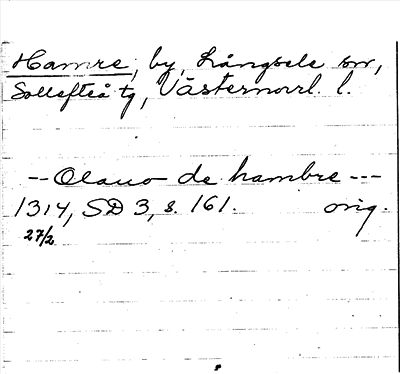 Hamre, by, Långsele sn,
Sollefteå tg, Västernorrl. l.
-- Olauo de hambre ---
1314, SD 3, s. 161. orig.
27/2